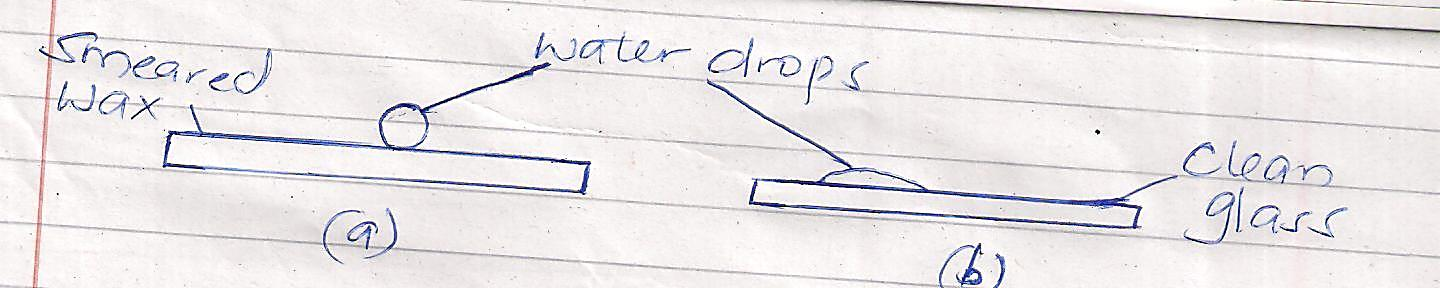 Smeared
wax
water drops
clean
glass
(a)
(b)